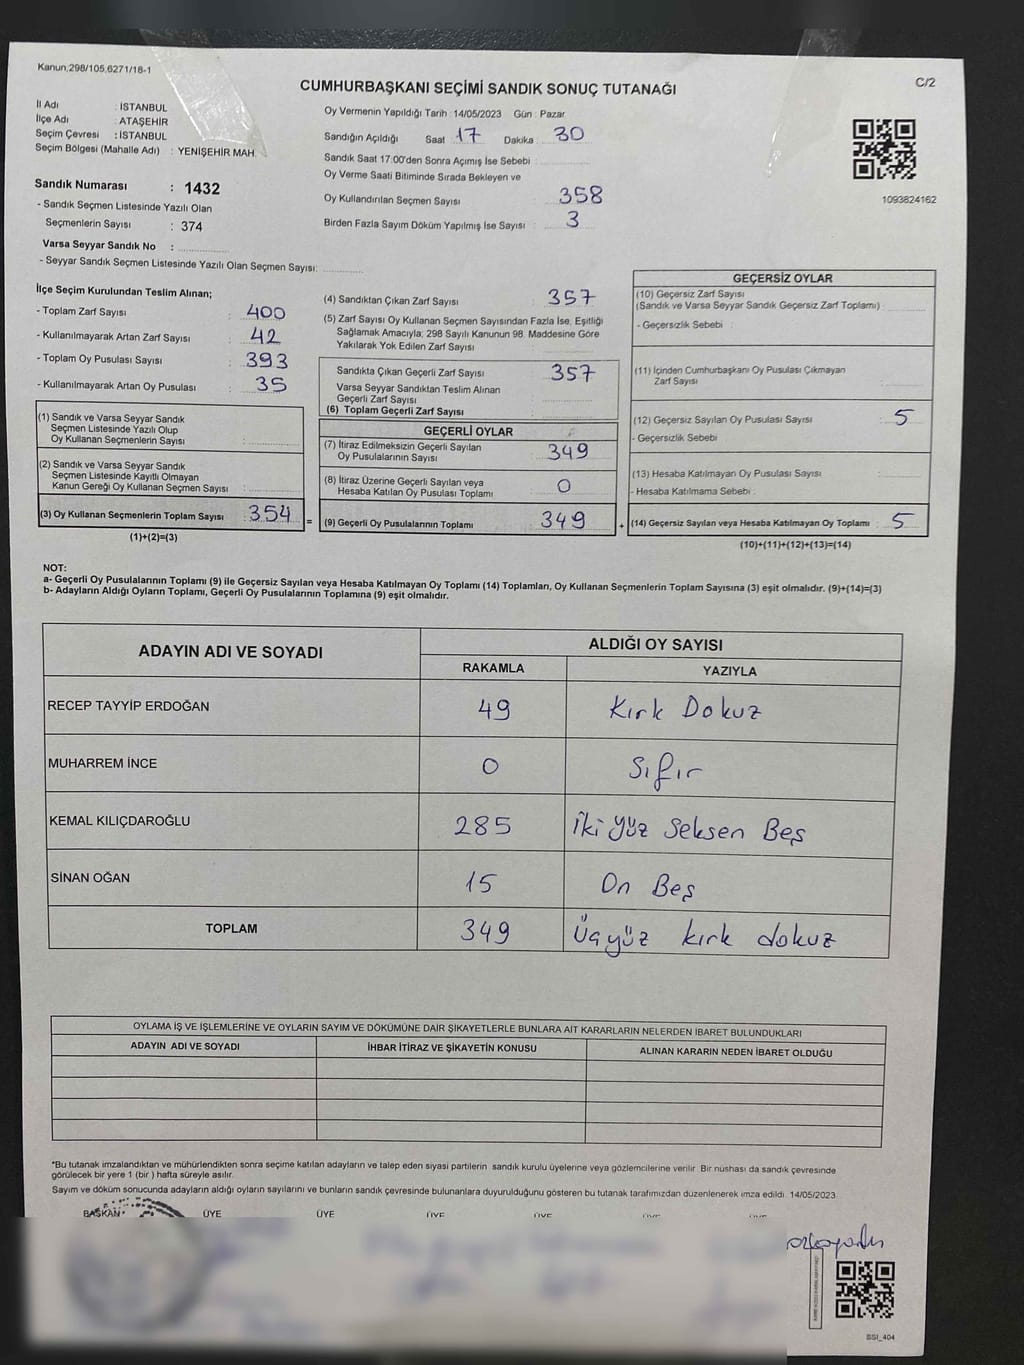 Kanun;298/105,6271/18-1
C/2
CUMHURBAŞKANI SEÇİMİ SANDIK SONUÇ TUTANAĞI
İl Adı : İSTANBUL
İlçe Adı : ATAŞEHİR
Seçim Çevresi : İSTANBUL
Seçim Bölgesi (Mahalle Adı) : YENİŞEHİR MAH.
Sandık Numarası : 1432
- Sandık Seçmen Listesinde Yazılı Olan
Seçmenlerin Sayısı : 374
Varsa Seyyar Sandık No :
- Seyyar Sandık Seçmen Listesinde Yazılı Olan Seçmen Sayısı:
Oy Vermenin Yapıldığı Tarih : 14/05/2023 Gün : Pazar
Sandığın Açıldığı Saat 17 Dakika 30
Sandık Saat 17:00'den Sonra Açımış İse Sebebi :
Oy Verme Saati Bitiminde Sırada Bekleyen ve
Oy Kullandırılan Seçmen Sayısı : 358
Birden Fazla Sayım Döküm Yapılmış İse Sayısı : 3
1093824162
İlçe Seçim Kurulundan Teslim Alınan;
- Toplam Zarf Sayısı : 400
- Kullanılmayarak Artan Zarf Sayısı : 42
- Toplam Oy Pusulası Sayısı : 393
- Kullanılmayarak Artan Oy Pusulası : 35
(1) Sandık ve Varsa Seyyar Sandık
Seçmen Listesinde Yazılı Olup
Oy Kullanan Seçmenlerin Sayısı :
(2) Sandık ve Varsa Seyyar Sandık
Seçmen Listesinde Kayıtlı Olmayan
Kanun Gereği Oy Kullanan Seçmen Sayısı :
(3) Oy Kullanan Seçmenlerin Toplam Sayısı : 354
(1)+(2)=(3)
(4) Sandıktan Çıkan Zarf Sayısı : 357
(5) Zarf Sayısı Oy Kullanan Seçmen Sayısından Fazla İse, Eşitliği
Sağlamak Amacıyla; 298 Sayılı Kanunun 98. Maddesine Göre
Yakılarak Yok Edilen Zarf Sayısı :
Sandıkta Çıkan Geçerli Zarf Sayısı : 357
Varsa Seyyar Sandıktan Teslim Alınan
Geçerli Zarf Sayısı :
(6) Toplam Geçerli Zarf Sayısı :
GEÇERLİ OYLAR
(7) İtiraz Edilmeksizin Geçerli Sayılan
Oy Pusulalarının Sayısı : 349
(8) İtiraz Üzerine Geçerli Sayılan veya
Hesaba Katılan Oy Pusulası Toplamı : 0
= (9) Geçerli Oy Pusulalarının Toplamı : 349
GEÇERSİZ OYLAR
(10) Geçersiz Zarf Sayısı
(Sandık ve Varsa Seyyar Sandık Geçersiz Zarf Toplamı) :
- Geçersizlik Sebebi :
(11) İçinden Cumhurbaşkanı Oy Pusulası Çıkmayan
Zarf Sayısı :
(12) Geçersiz Sayılan Oy Pusulası Sayısı : 5
- Geçersizlik Sebebi
(13) Hesaba Katılmayan Oy Pusulası Sayısı :
- Hesaba Katılmama Sebebi :
+ (14) Geçersiz Sayılan veya Hesaba Katılmayan Oy Toplamı : 5
(10)+(11)+(12)+(13)=(14)
NOT:
a- Geçerli Oy Pusulalarının Toplamı (9) ile Geçersiz Sayılan veya Hesaba Katılmayan Oy Toplamı (14) Toplamları, Oy Kullanan Seçmenlerin Toplam Sayısına (3) eşit olmalıdır. (9)+(14)=(3)
b- Adayların Aldığı Oyların Toplamı, Geçerli Oy Pusulalarının Toplamına (9) eşit olmalıdır.
ADAYIN ADI VE SOYADI ALDIĞI OY SAYISI
RAKAMLA YAZIYLA
RECEP TAYYİP ERDOĞAN 49 Kırk Dokuz
MUHARREM İNCE 0 Sıfır
KEMAL KILIÇDAROĞLU 285 İki Yüz Seksen Beş
SİNAN OĞAN 15 On Beş
TOPLAM 349 Üçyüz kırk dokuz
OYLAMA İŞ VE İŞLEMLERİNE VE OYLARIN SAYIM VE DÖKÜMÜNE DAİR ŞİKAYETLERLE BUNLARA AİT KARARLARIN NELERDEN İBARET BULUNDUKLARI
ADAYIN ADI VE SOYADI İHBAR İTİRAZ VE ŞİKAYETİN KONUSU ALINAN KARARIN NEDEN İBARET OLDUĞU
*Bu tutanak imzalandıktan ve mühürlendikten sonra seçime katılan adayların ve talep eden siyasi partilerin sandık kurulu üyelerine veya gözlemcilerine verilir. Bir nüshası da sandık çevresinde
görülecek bir yere 1 (bir ) hafta süreyle asılır.
Sayım ve döküm sonucunda adayların aldığı oyların sayılarını ve bunların sandık çevresinde bulunanlara duyurulduğunu gösteren bu tutanak tarafımızdan düzenlenerek imza edildi. 14/05/2023
BAŞKAN ÜYE ÜYE ÜYE ÜYE ÜYE ÜYE
SSI_404